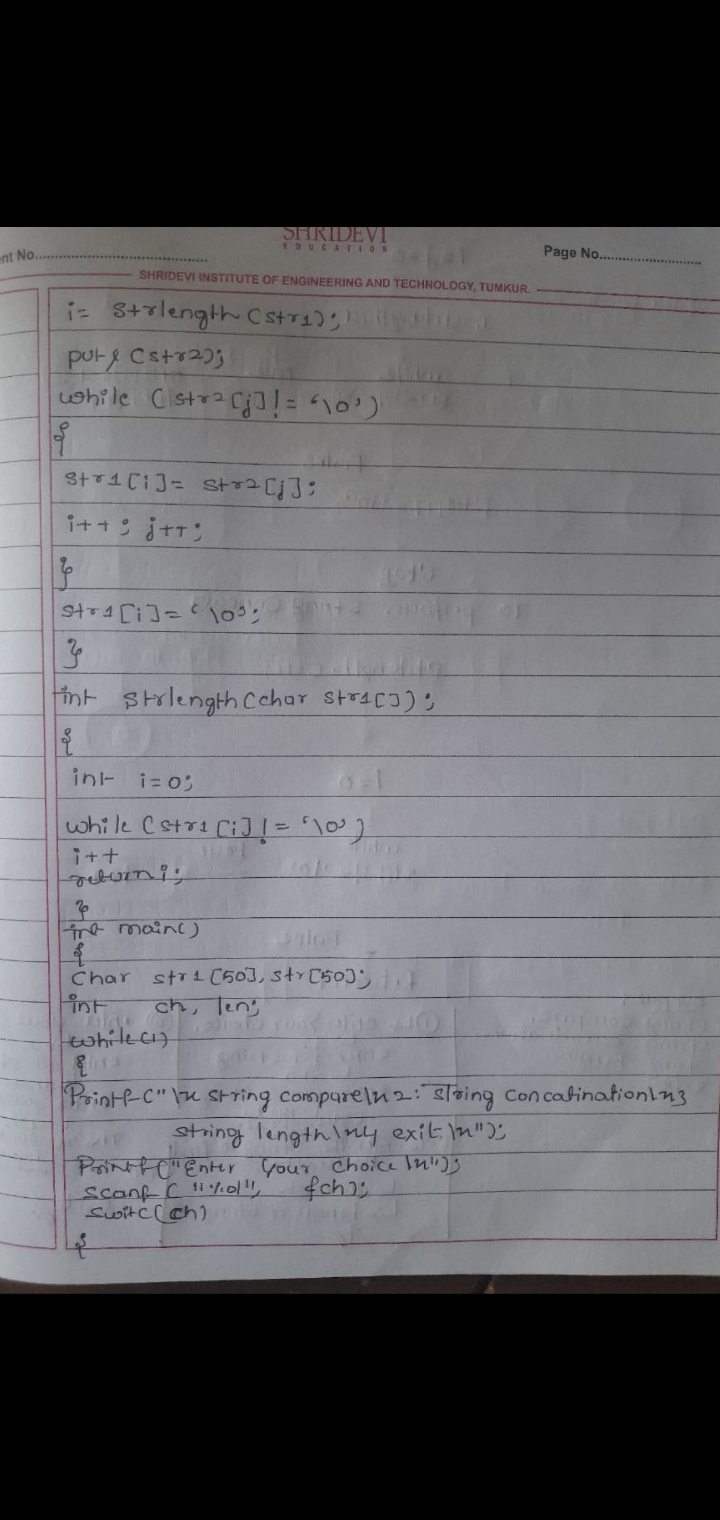 SHRIDEVI
EDUCATION
nt No.
Page No.
SHRIDEVI INSTITUTE OF ENGINEERING AND TECHNOLOGY, TUMKUR.
i= strlength (str1);
puts (str2);
while (str2[j]!= '\0')
{
str1[i]= str2[j];
i++; j++;
}
str1[i]='\0';
}
int strlength (char str1[]);
{
int i=0;
while (str1[i]!='\0')
i++
return i;
}
int main()
{
Char str1[50], str[50];
int ch, len;
while(1)
{
Printf("\n string compare\n2: string concatination\n3
string length\n4 exit\n");
Printf("Enter your choice\n");
scanf("%d", &ch);
switc(ch)
{